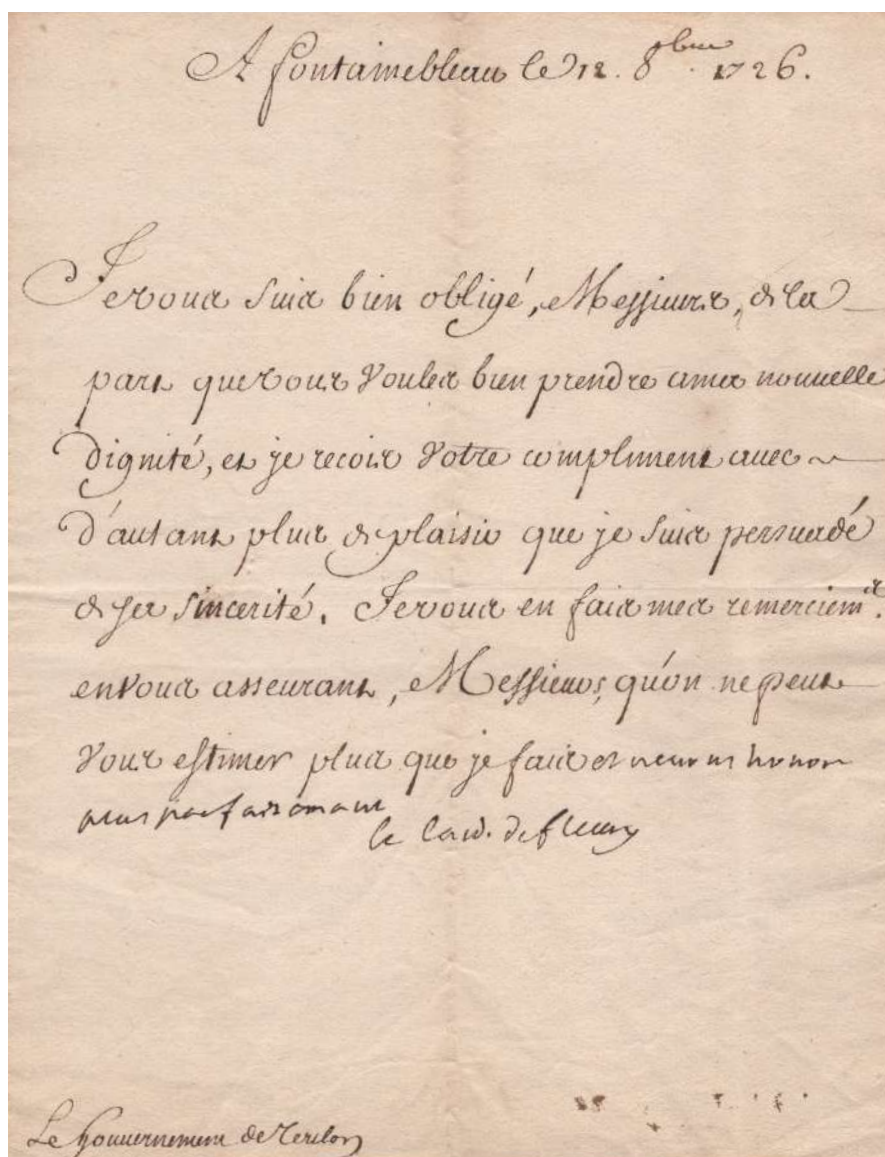 A fontainebleau le 12. 8bre 1726.
Je vous suis bien obligé, Messieurs, de la
part que vous voulez bien prendre a ma nouuelle
dignité, et je recois votre compliment auec
d'autant plus de plaisir que je suis persuadé
de sa sincerité. Je vous en fais mes remerciemts.
en vous asseurant, Messieurs, qu'on ne peut
vous estimer plus que je fais et ni vous honorer
plus parfaitement
le Card. de fleury
Le Gouuernement de